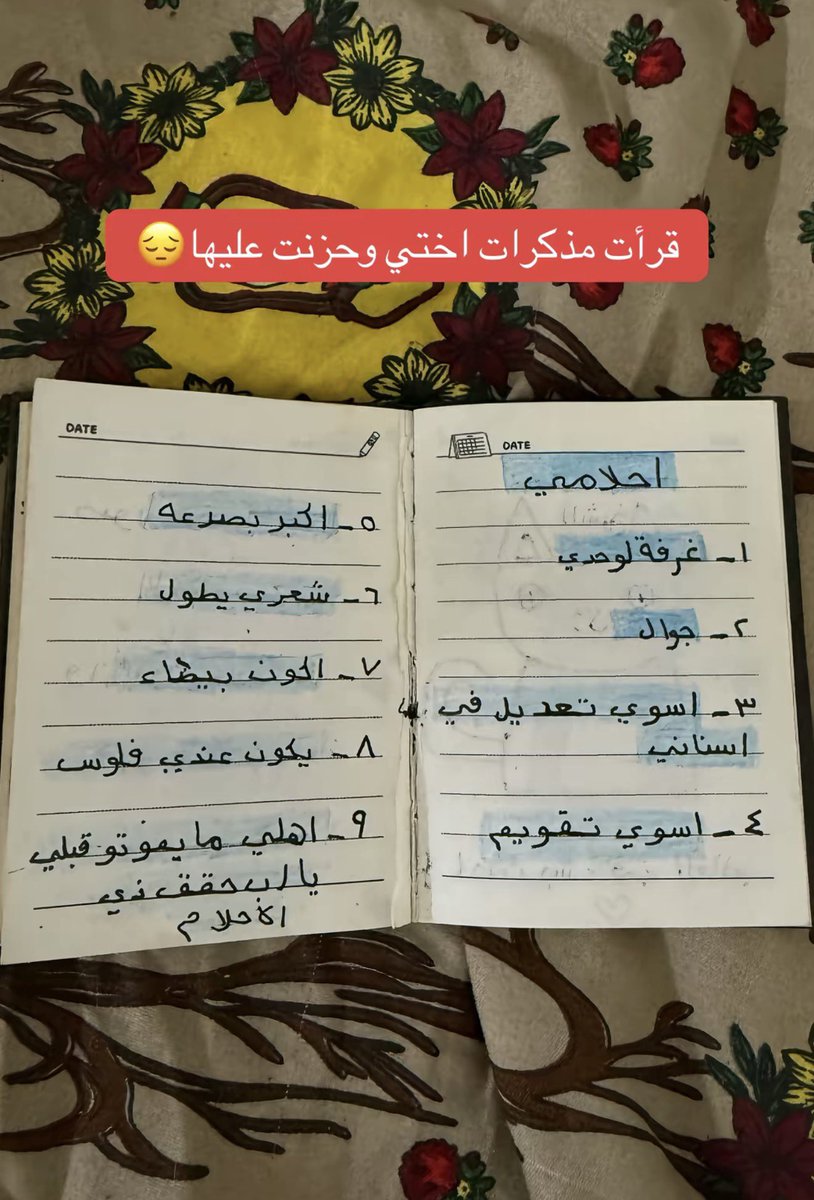 قرأت مذكرات اختي وحزنت عليها😔
DATE
احلامي
١- غرفة لوحدي
٢- جوال
٣- اسوي تعديل في
اسناني
٤- اسوي تقويم
DATE
٥- اكبر بصرعه
٦- شعري يطول
٧- اكون بيضاء
٨- يكون عندي فلوس
٩- اهلي ما يموتو قبلي
يا رب حقق ذي
الأحلام